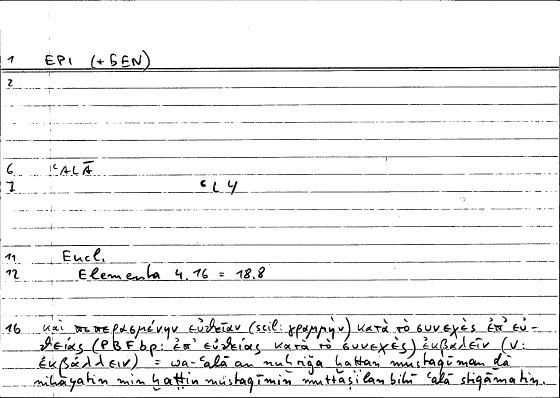 1 EPI (+ GEN)
2
6 ʿALĀ
7 ʿLY
11 Eucl.
12 Elementa 4.16 = 18.8
16 καὶ πεπερασμένην εὐθεῖαν (scil. γραμμὴν) κατὰ τὸ συνεχὲς ἐπ' εὐ-
θείας (PBFbp: ἐπ' εὐθείας κατὰ τὸ συνεχὲς) ἐκβαλεῖν (V:
ἐκβάλλειν) = wa-ʿalā an nuḫriǧa ḫaṭṭan mustaqīman ḏā
nihāyatin min ḫaṭṭin mustaqīmin muttaṣilan bihī ʿalā stiqāmatin.